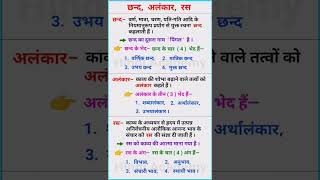 छन्द, अलंकार, रस
छन्द- वर्ण, मात्रा, चरण, यति-गति आदि के
नियमानुसार प्रयोग से युक्त रचना छन्द
कहलाती हैं।
छन्द का दूसरा नाम "पिंगल" है।
छन्द के भेद- छन्द के चार (4) भेद हैं-
1. वर्णिक छन्द, 2. मात्रिक छन्द
3. उभय छन्द 4. मुक्त छन्द
अलंकार- काव्य की शोभा बढ़ाने वाले तत्वों को
अलंकार कहते हैं।
अलंकार के तीन (3) भेद हैं-
1. शब्दालंकार, 2. अर्थालंकार,
3. उभयालंकार।
रस- काव्य के अध्ययन से हृदय में उत्पन्न
अनिर्वचनीय अलौकिक आनन्द भाव के
संचार को रस की संज्ञा दी जाती है।
रस को काव्य की आत्मा माना गया है।
रस के अंग- रस के चार (4) अंग हैं-
1. विभाव, 2. अनुभाव,
3. संचारी भाव, 4. स्थायी भाव।
3. उभय
वाले तत्वों को
अर्थालंकार,